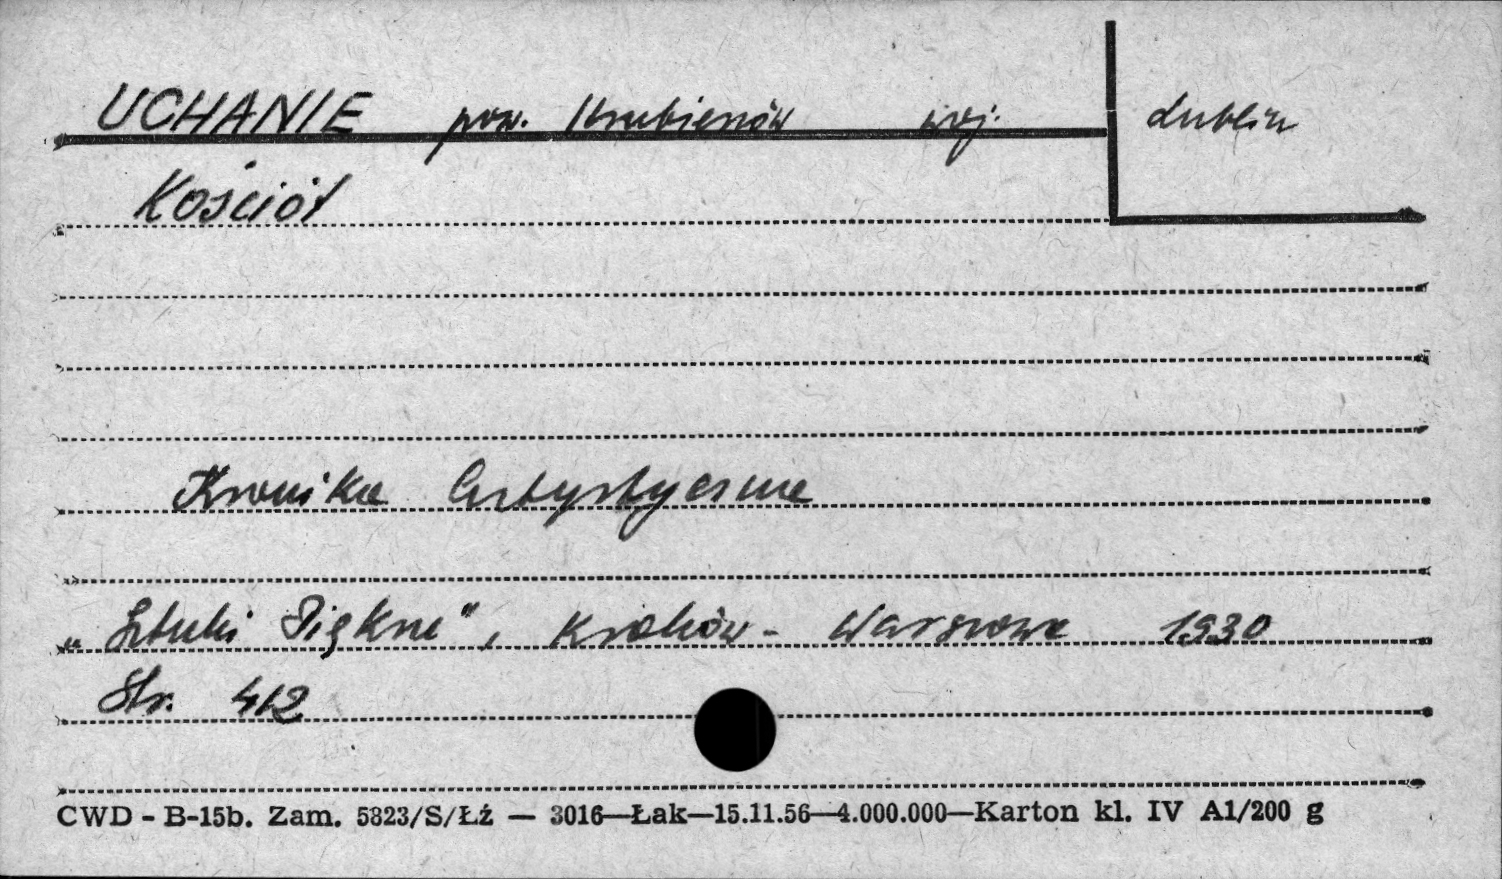 UCHANIE pow. Hrubieszów woj. Lublin
Kościół
Kronika Artystyczna
„Sztuki Piękne", Kraków - Warszawa 1930
Str. 412
CWD - B-15b. Zam. 5823/S/Łź — 3016—Łak—15.11.56—4.000.000—Karton kl. IV A1/200 g